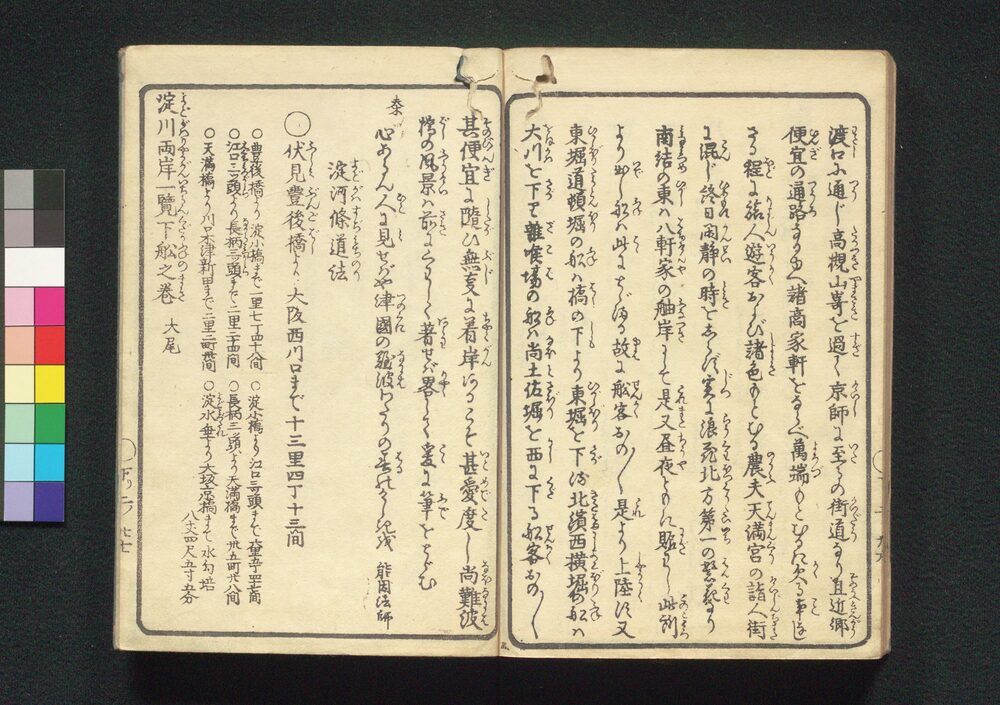 渡口に通じ高槻山寄を過て京師に至るの街道なり且近郷
便宜の通路なるゆへ諸商家軒をならべ萬端もとむるに欠る事な
き程に旅人遊客および諸色もとむる農夫天満宮の詣人街
に混じ終日閑静の時をしらず実に浪花北方第一の繁花なり
南結の東は八軒家の舳岸にて是又昼夜ともに賑はし此所
より出し船は此にとゞまる故に船客おの〱是より上陸す又
東堀道頓堀の船は橋の下より東堀を下る北濱西横堀の船は
大川を下り雑喉場の船は尚土佐堀を西に下る船客おの〱
其便宜に随ひ無異に着岸するこそ甚愛度し尚難波
橋の風景は前にくはしく著せば畧しつゝ爰に筆をとゞむ
心あらん人に見せばや津國の難波わたりの春のけしきを 能因法師
淀河條道法
◯伏見豊後橋より大阪西川口まで十三里四丁十三間
○豊後橋より淀小橋まで一里七丁四十八間
○淀小橋より江口三ツ頭まで
○江口三ツ頭より長柄三ツ頭まで二里二十四間
○長柄三ツ頭より天満橋まで卅五町卅八間
○天満橋より川口木津新田まで二里二町
○淀水垂より大坂京橋まで水勾培
八丈四尺五寸五分
淀川両岸一覧下船之巻 大尾
下り二ノ廿七